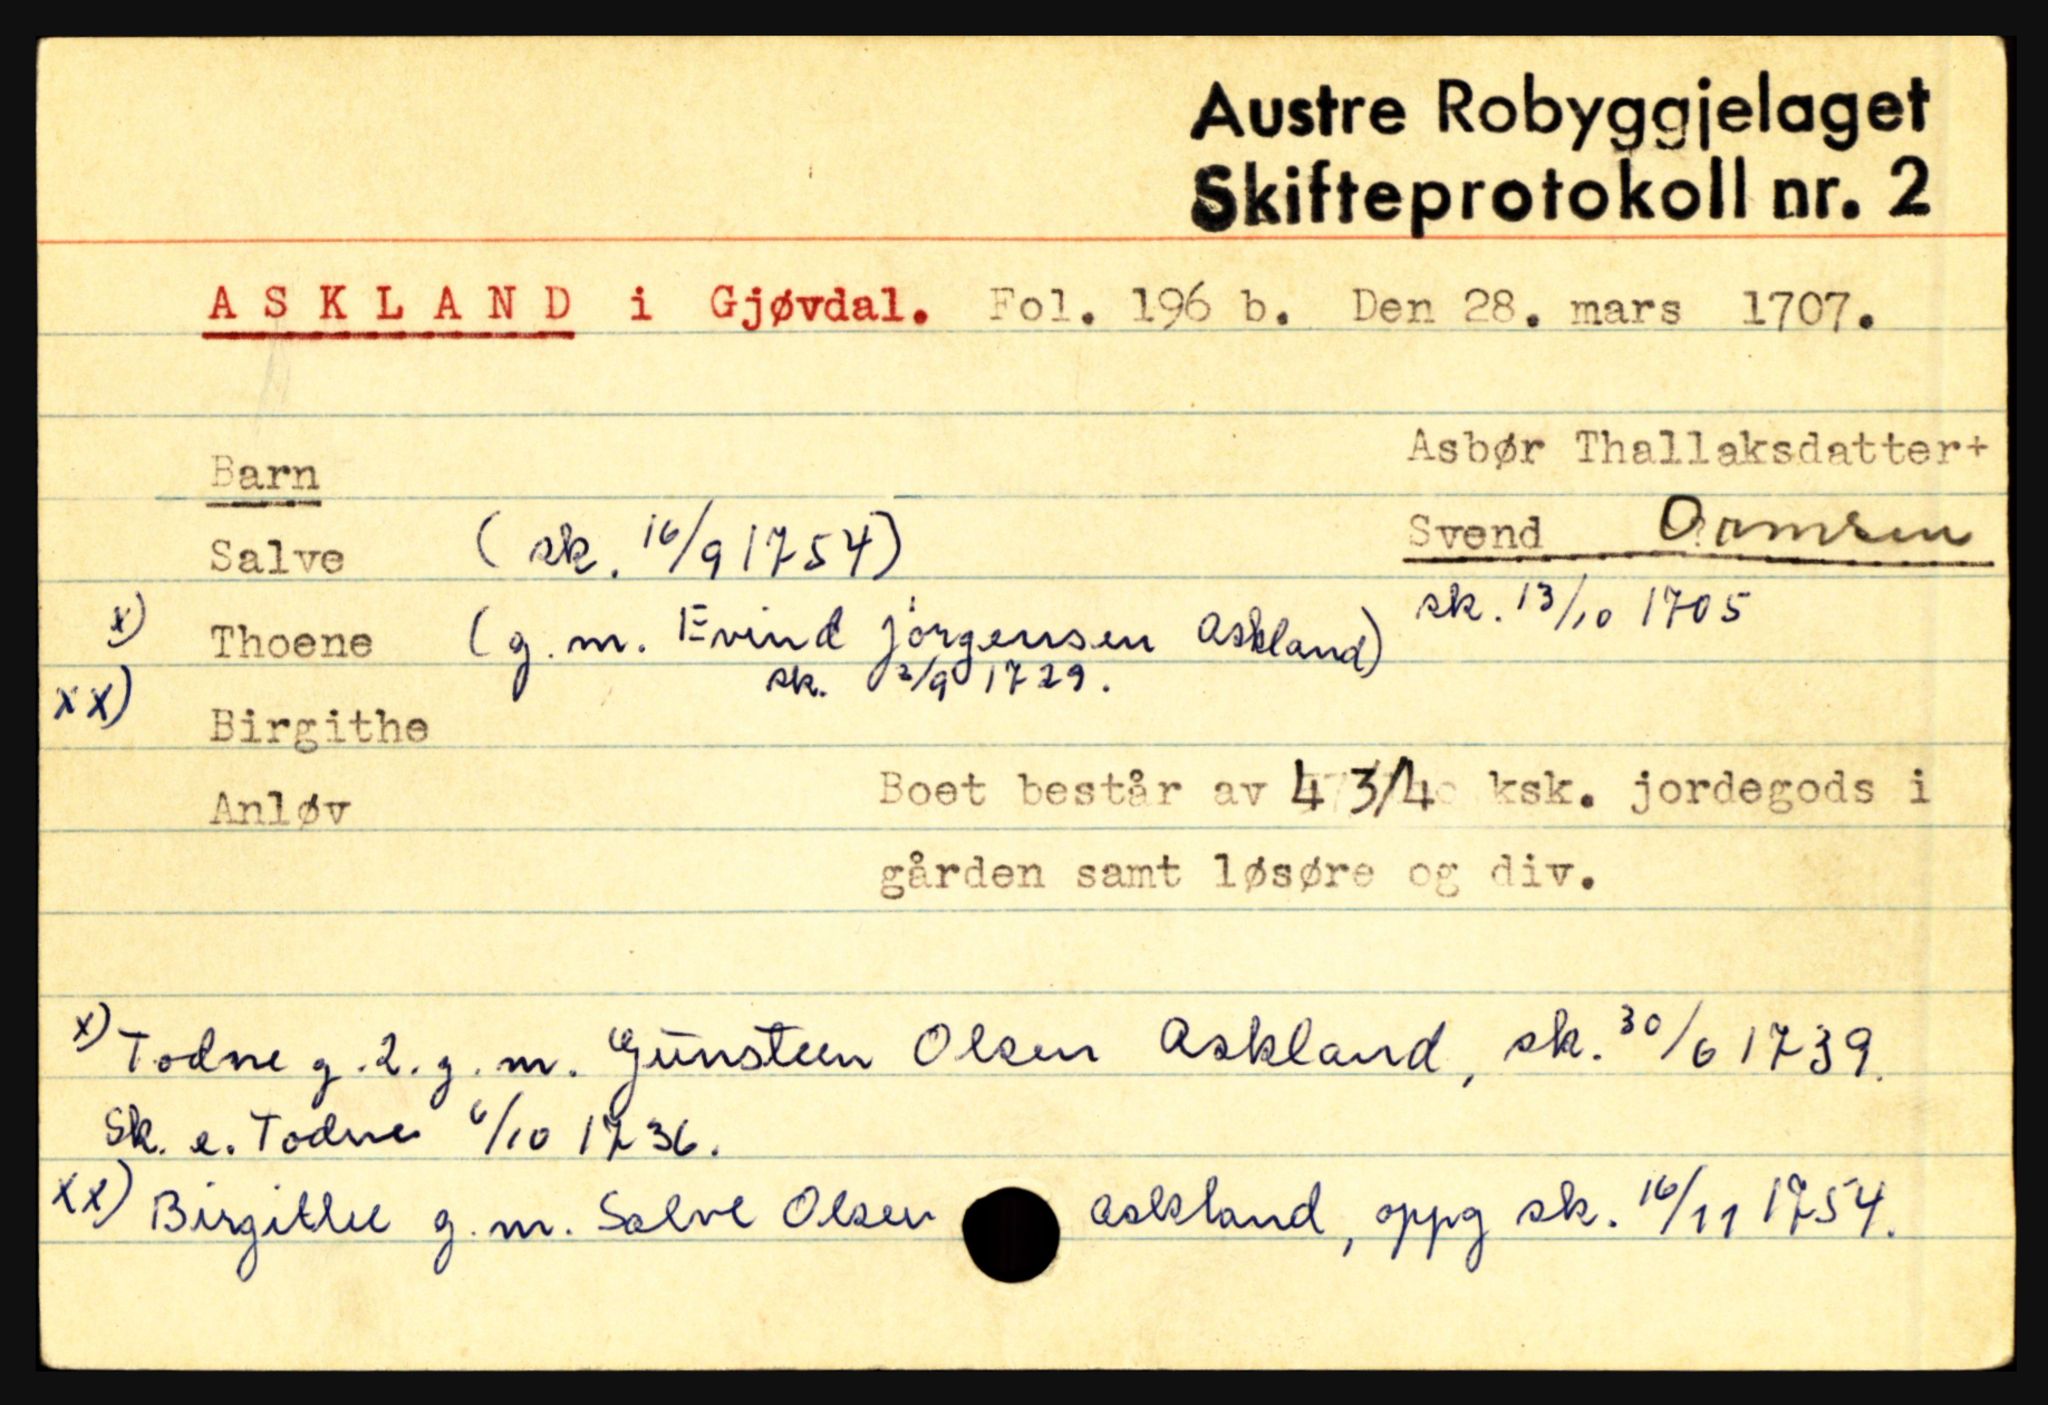 Austre Robyggjelaget
Skifteprotokoll nr. 2
ASKLAND i Gjøvdal. Fol. 196 b. Den 28. mars 1707.
Asbør Thallaksdatter+
Barn
Svend Ormsen
Salve (sk. 16/9 1754)
sk. 13/10 1705
x) Thoene (g. m. Evind Jörgensen Askland)
sk. 2/9 1729.
xx) Birgithe
Boet består av 4 3/4 ksk. jordegods i
Anløv
gården samt løsøre og div.
x) Todne g. 2. g. m. Gunsteen Olsen Askland, sk. 30/6 1739.
Sk. e. Todne 6/10 1736.
xx) Birgithe g. m. Salve Olsen Askland, oppg sk. 16/11 1754.